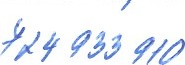 724 933 910